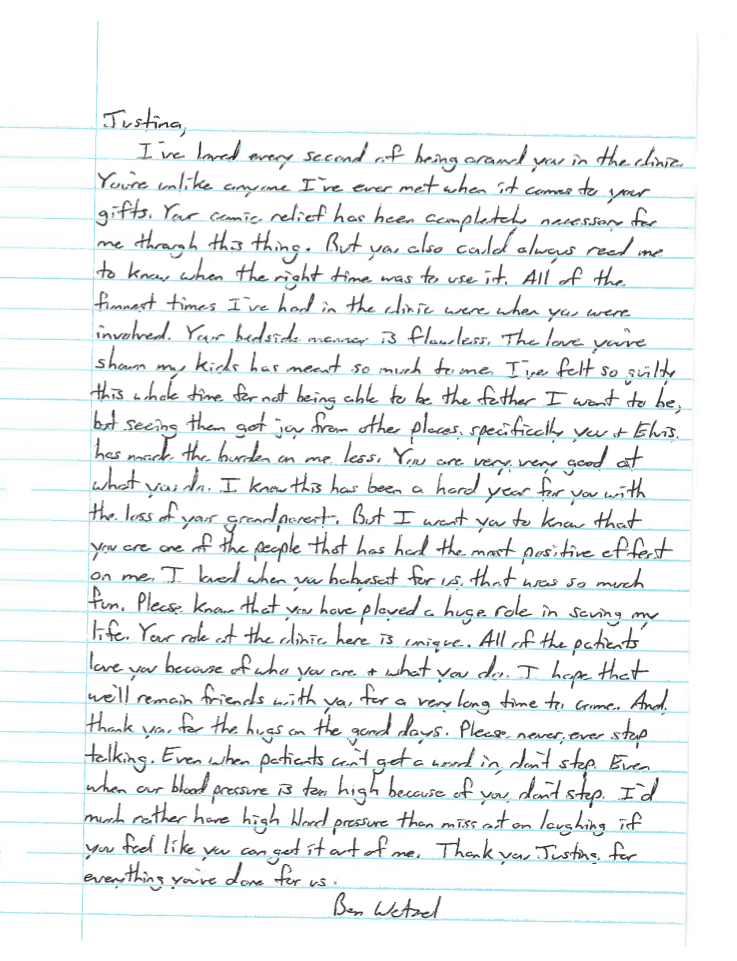 Justina,
I've loved every second of being around you in the clinic.
You're unlike anyone I've ever met when it comes to your
gifts. Your comic relief has been completely necessary for
me through this thing. But you also could always read me
to know when the right time was to use it. All of the
funnest times I've had in the clinic were when you were
involved. Your bedside manner is flawless. The love you've
shown my kids has meant so much to me. I've felt so guilty
this whole time for not being able to be the father I want to be,
but seeing them get joy from other places, specifically you + Elvis.
has made the burden on me less. You are very, very good at
what you do. I know this has been a hard year for you with
the loss of your grandparent. But I want you to know that
you are one of the people that has had the most positive effect
on me. I loved when you babysat for us, that was so much
fun. Please know that you have played a huge role in saving my
life. Your role at the clinic here is unique. All of the patients
love you because of who you are + what you do. I hope that
we'll remain friends with you for a very long time to come. And,
thank you for the hugs on the good days. Please never, ever stop
talking. Even when patients can't get a word in, don't stop. Even
when our blood pressure is too high because of you, don't stop. I'd
much rather have high blood pressure than miss out on laughing if
you feel like you can get it out of me. Thank you Justina, for
everything you've done for us.
Ben Wetzel